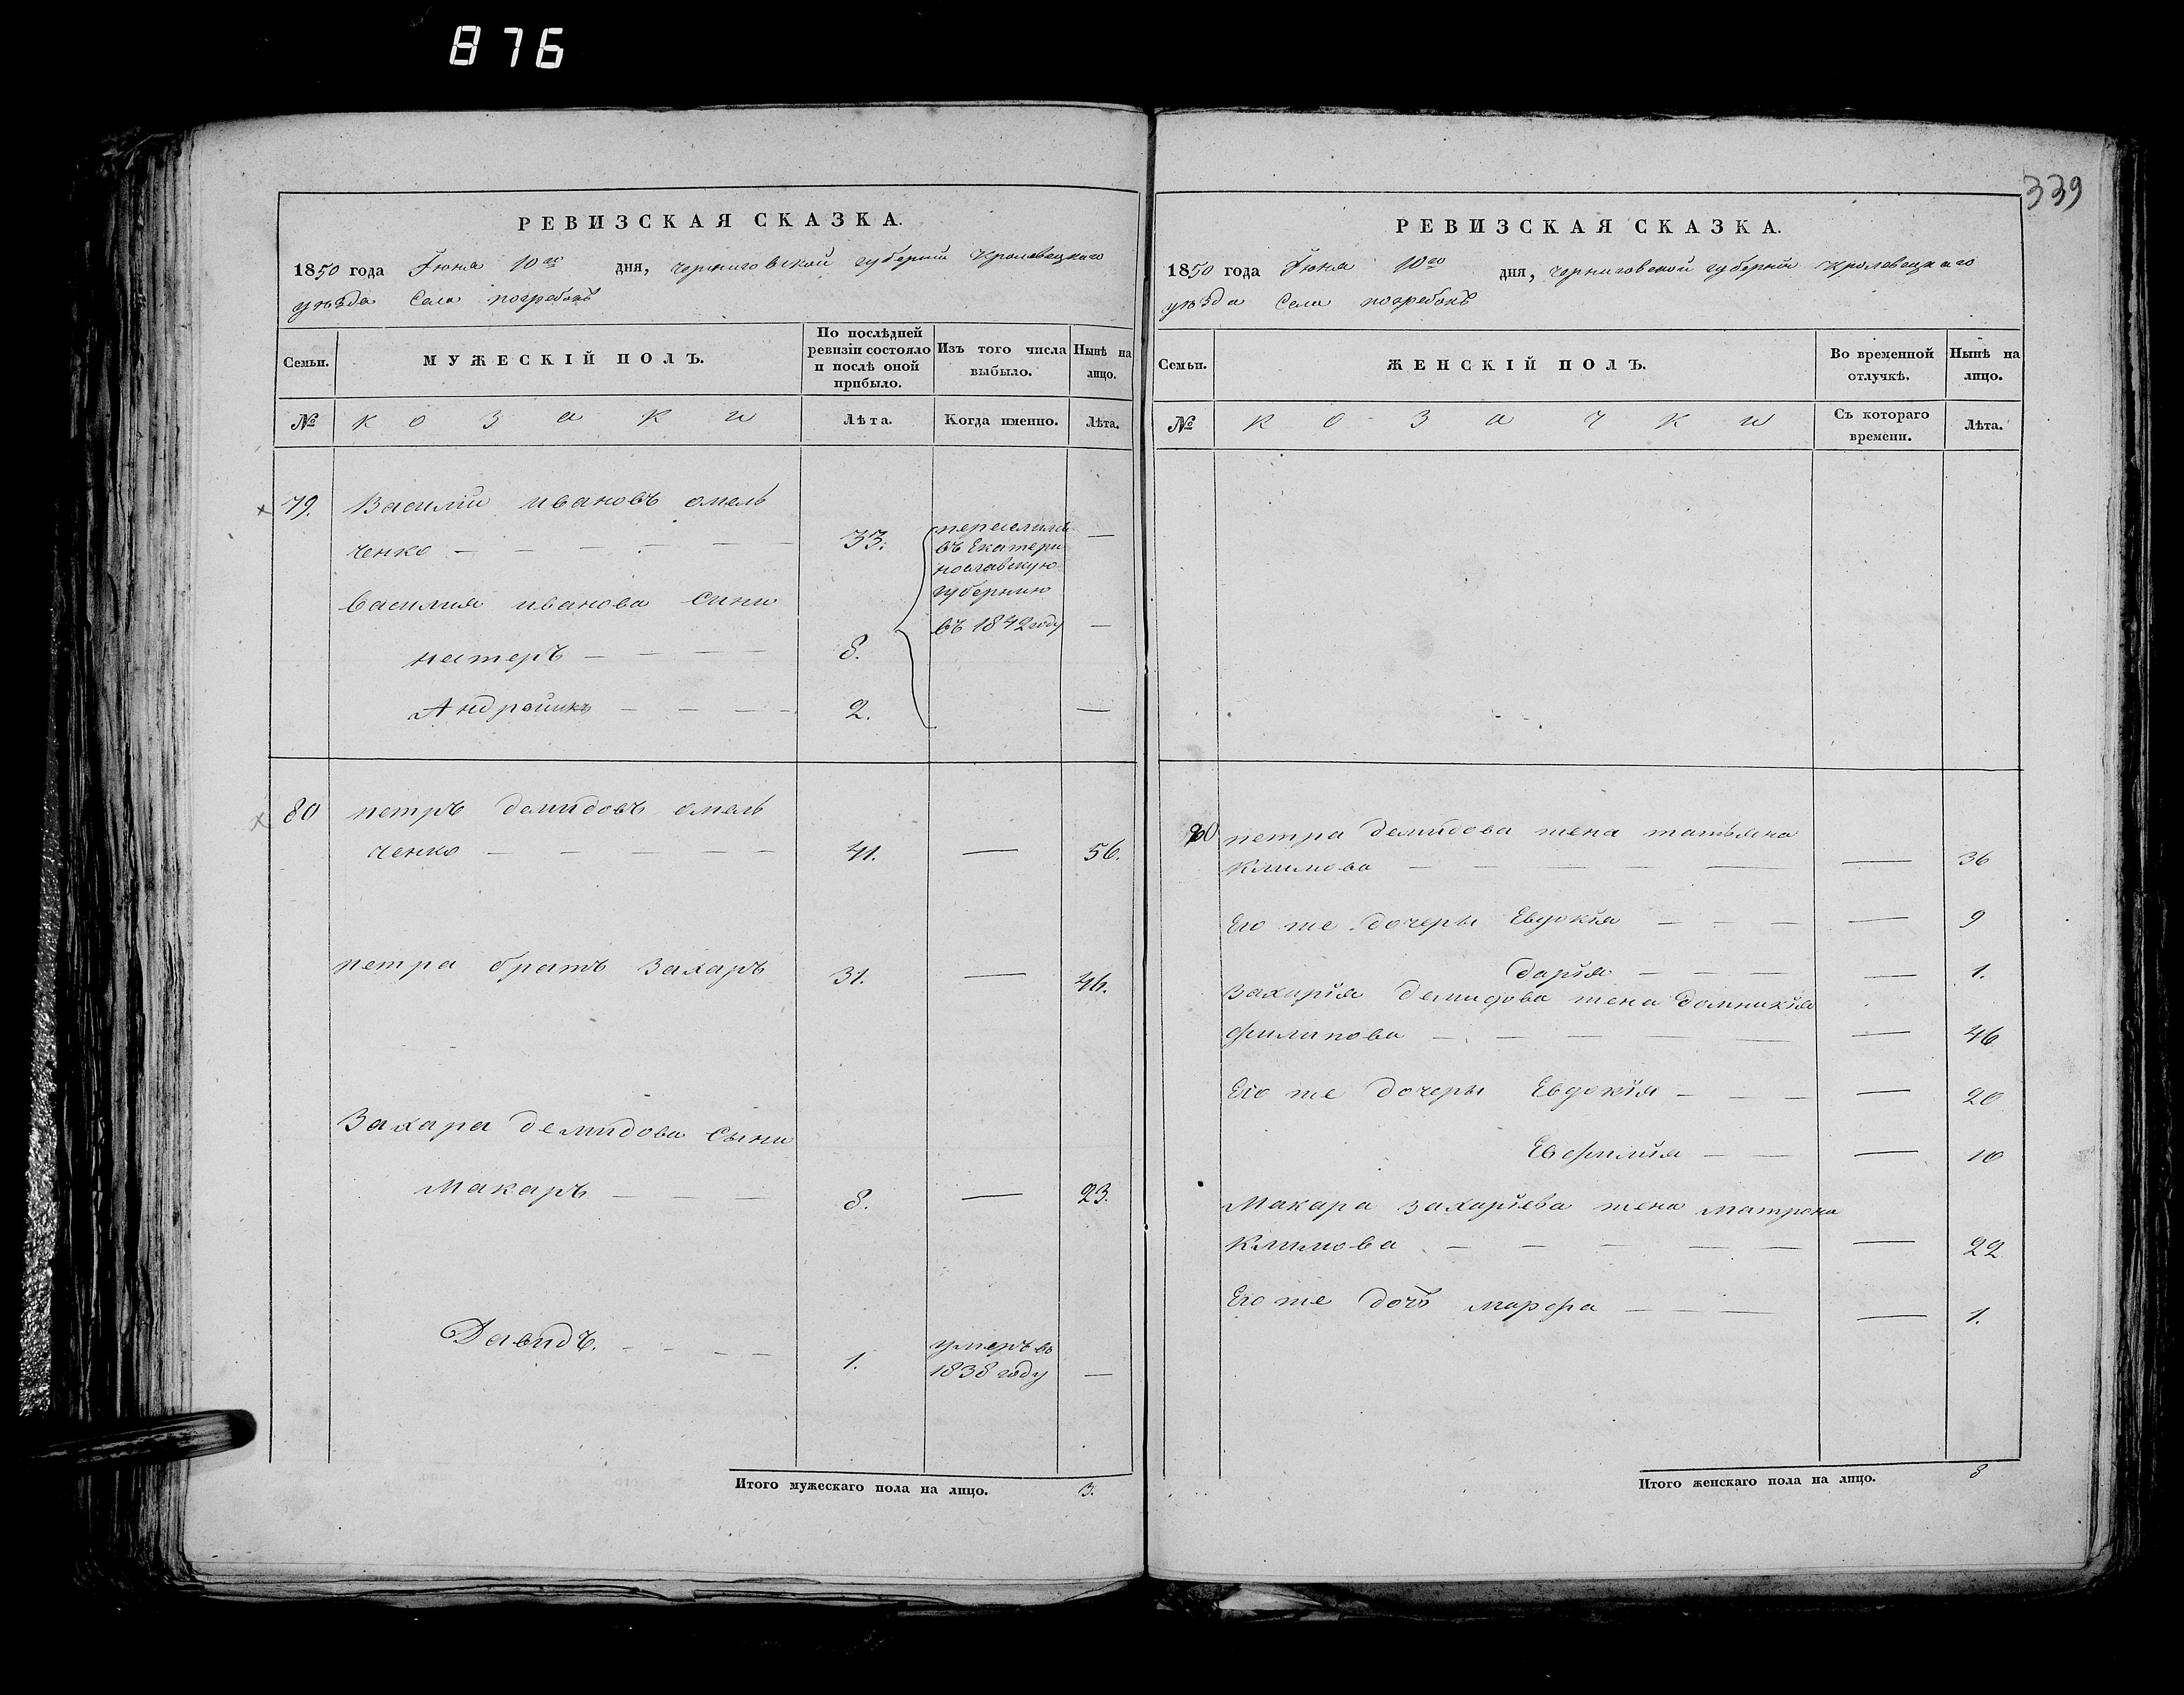 876
РЕВИЗСКАЯ СКАЗКА.
1850 года Іюня 10го дня, черниговской губерніи Кролевецкаго
уѣзда Села погребокъ
Семьи.
МУЖЕСКІЙ ПОЛЪ.
По послѣдней
ревизіи состояло
и послѣ оной
прибыло.
Изъ того числа
выбыло.
Нынѣ на
лицо.
№
козаки
Лѣта.
Когда именно.
Лѣта.
79. Василій ивановъ омель
ченко — — — — — 33. —
переселились
въ Екатери
нославскую
губернию
въ 1842 году
Василия иванова сини
нестеръ — — — — 8. —
Андрейикъ — — — — 2. —
80 петръ демидовъ омель
ченко — — — — — 41. — 56.
петра братъ захаръ 31. — 46.
Захара демидова сыни
Макаръ — — — 8. — 23.
Давидъ. — — — — 1.
умеръ въ
1838 году —
Итого мужескаго пола на лицо. 3.
339
РЕВИЗСКАЯ СКАЗКА.
1850 года Іюня 10го дня, черниговской губерніи Кролевецкаго
уѣзда Села погребокъ
Семьи.
ЖЕНСКІЙ ПОЛЪ.
Во временной
отлучкѣ.
Нынѣ на
лицо.
№
козачки
Съ котораго
времени.
Лѣта.
80 петра демидова жена татьяна
Климова — — — — — — 36
Его же дочеры Евдокія — — — — 9
дарія — — — — 1.
Захарія демидова жена домникія
филипова — — — — — — 46
Его же дочеры Евдокія — — — — 20
Евфимія — — — 10
Макара захаріева жена матрона
Климова — — — — — — 22
Его же дочь марфа — — — — 1.
Итого женскаго пола на лицо. 8